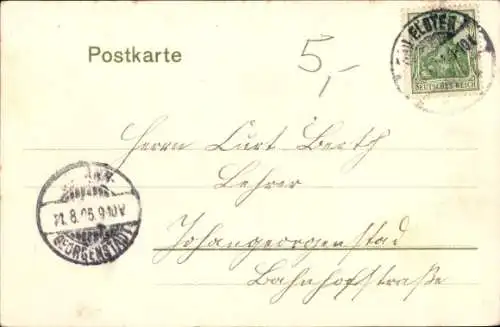 Postkarte
5,-
DEUTSCHES REICH
Herrn Curt Berth
Lehrer
Johangeorgenstad
Bahnhofstraße
21.8.05.9-10V
GEORGENSTADT